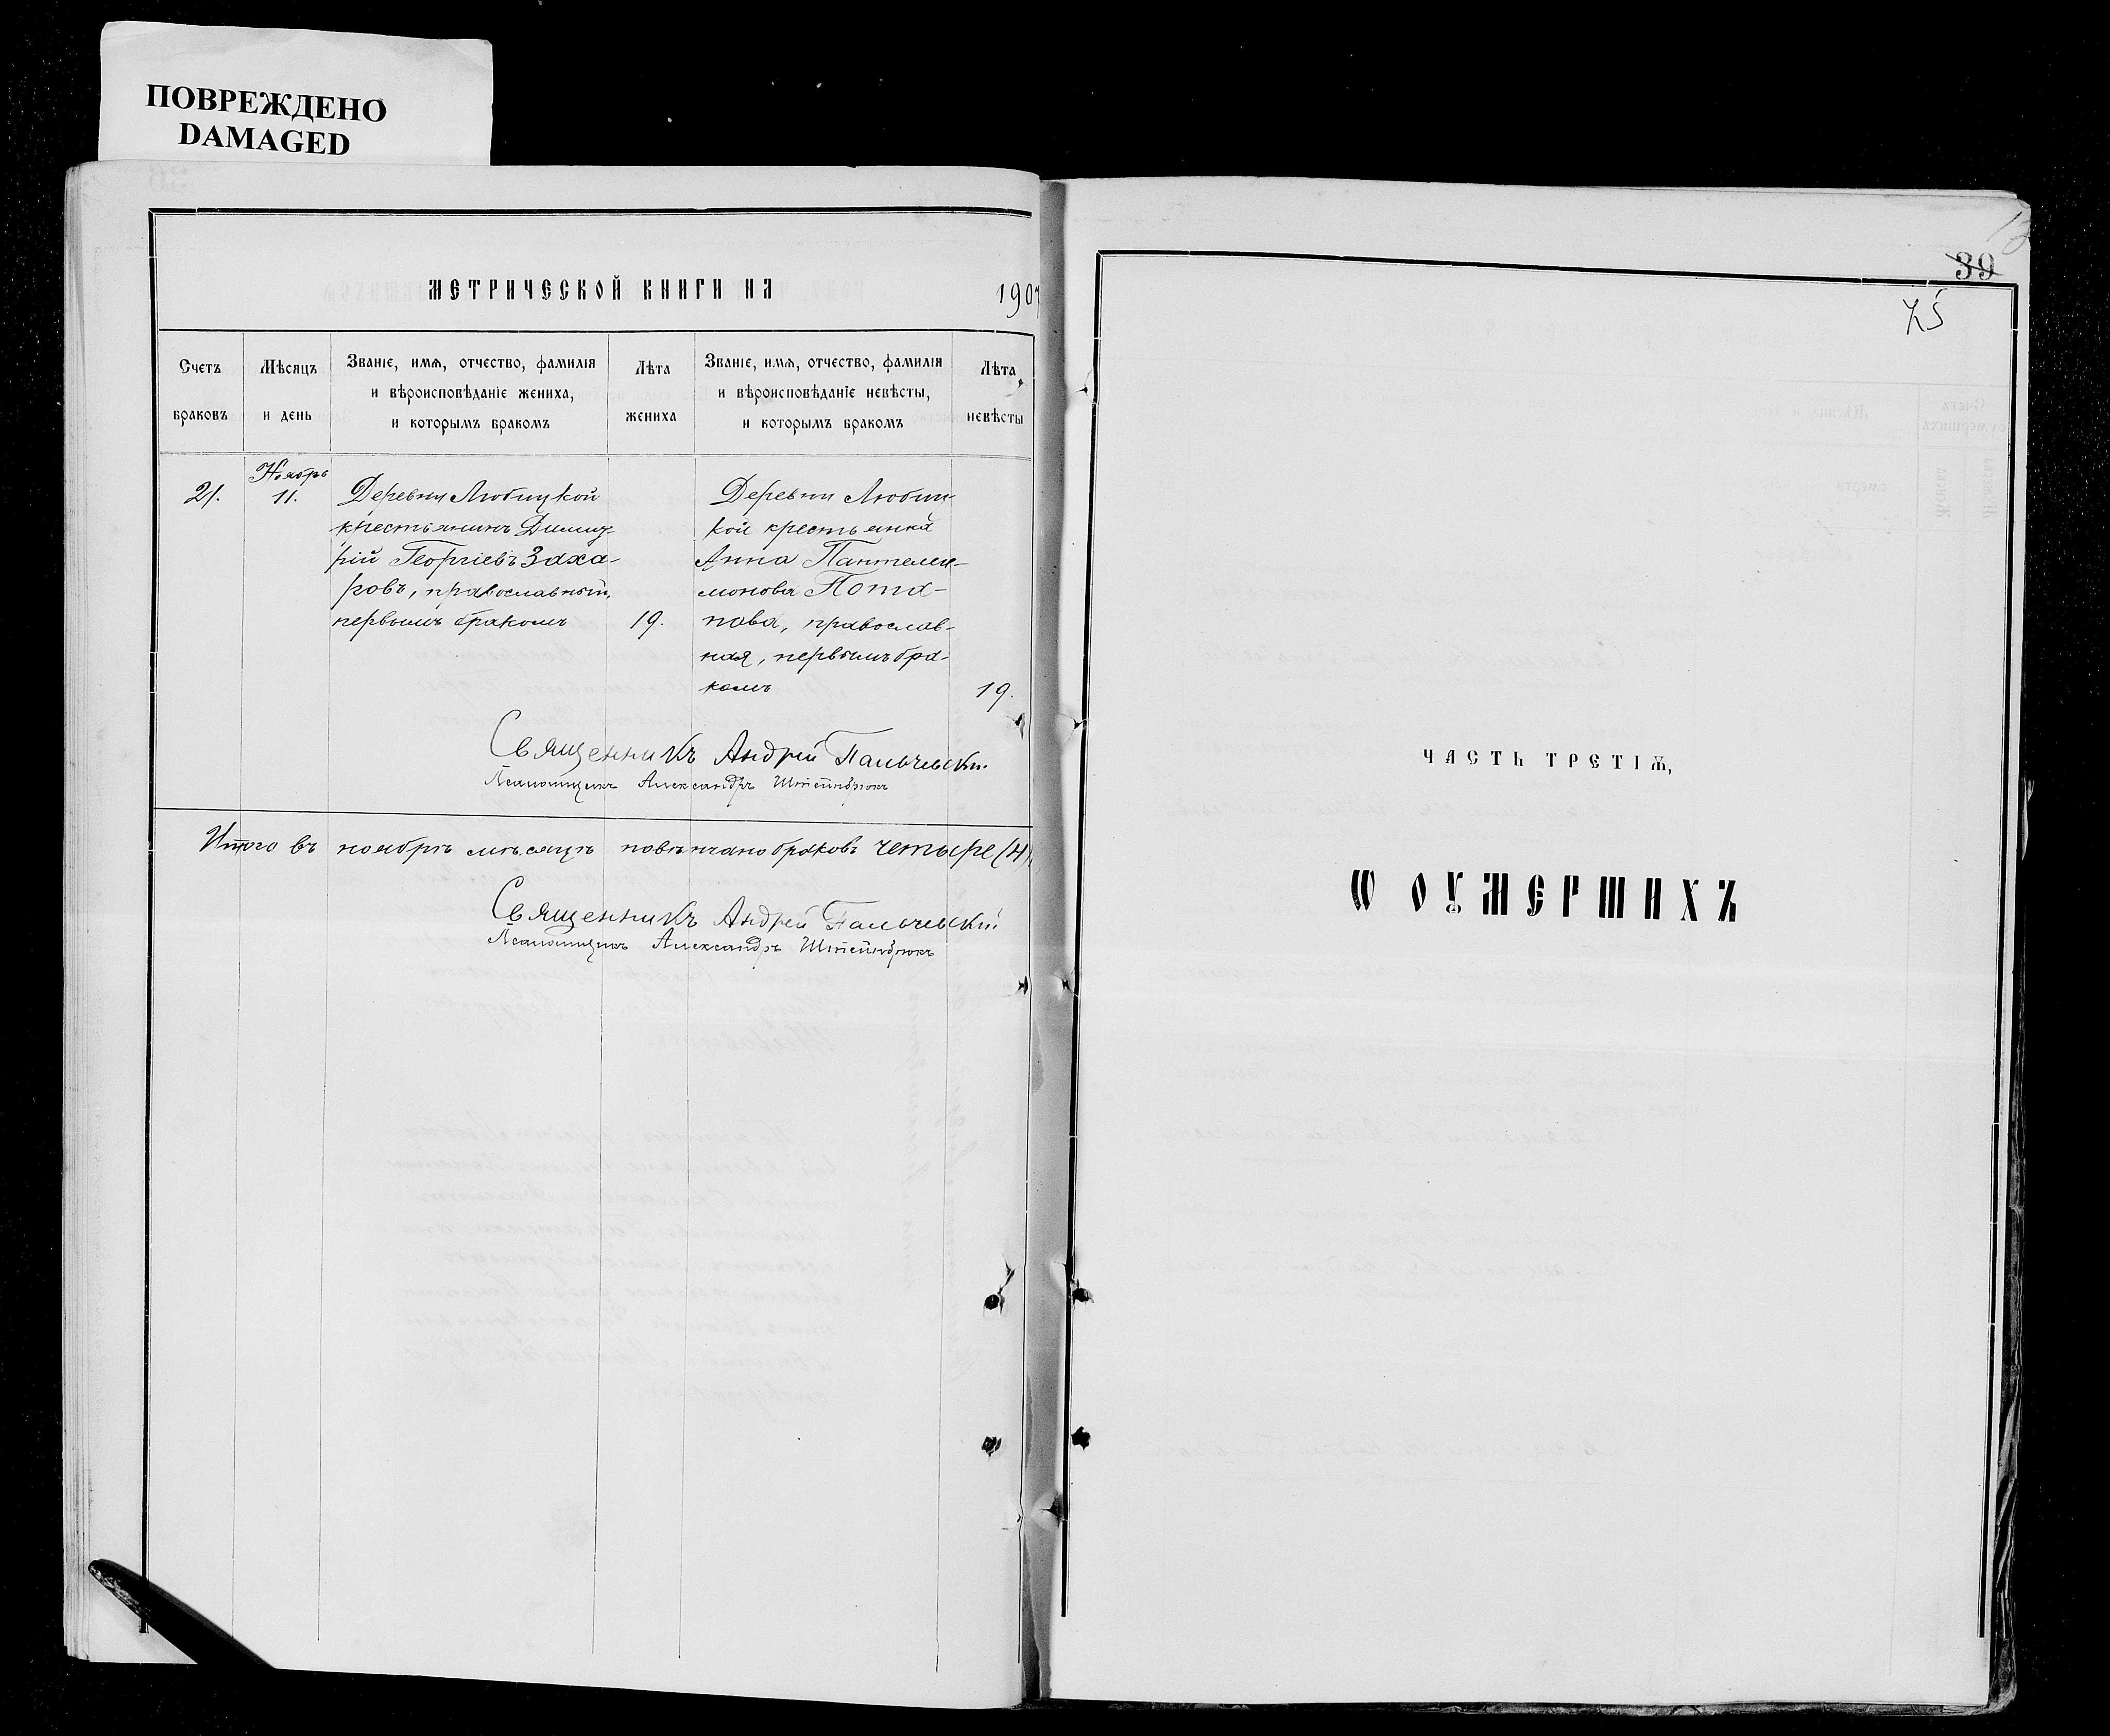 ПОВРЕЖДЕНО
DAMAGED
МЕТРИЧЕСКОЙ КНИГИ НА 1907
Счетъ браковъ
Мѣсяцъ и день
Званіе, имѧ, отчество, фамилія
и вѣроисповѣданіе жениха,
и которымъ бракомъ
Лѣта жениха
Званіе, имѧ, отчество, фамилія
и вѣроисповѣданіе невѣсты,
и которымъ бракомъ
Лѣта невѣсты
21.
Ноябрь
11.
Деревни Любицкой
крестьянинъ Димит-
рій Георгіевъ Заха-
ровъ, православный,
первымъ бракомъ
19.
Деревни Любиц-
кой крестьянка
Анна Пантелеи-
монова Пота-
пова, православ-
ная, первымъ бра-
комъ
19.
Священникъ Андрей Пальчевскій
Псаломщикъ Александръ Штейнбрюкъ
Итого въ ноябрѣ мѣсяцѣ повѣнчано браковъ четыре (4).
Священникъ Андрей Пальчевскій
Псаломщикъ Александръ Штейнбрюкъ
39
ЧАСТЬ ТРЕТІѦ,
Ѡ ОУМЕРШИХЪ